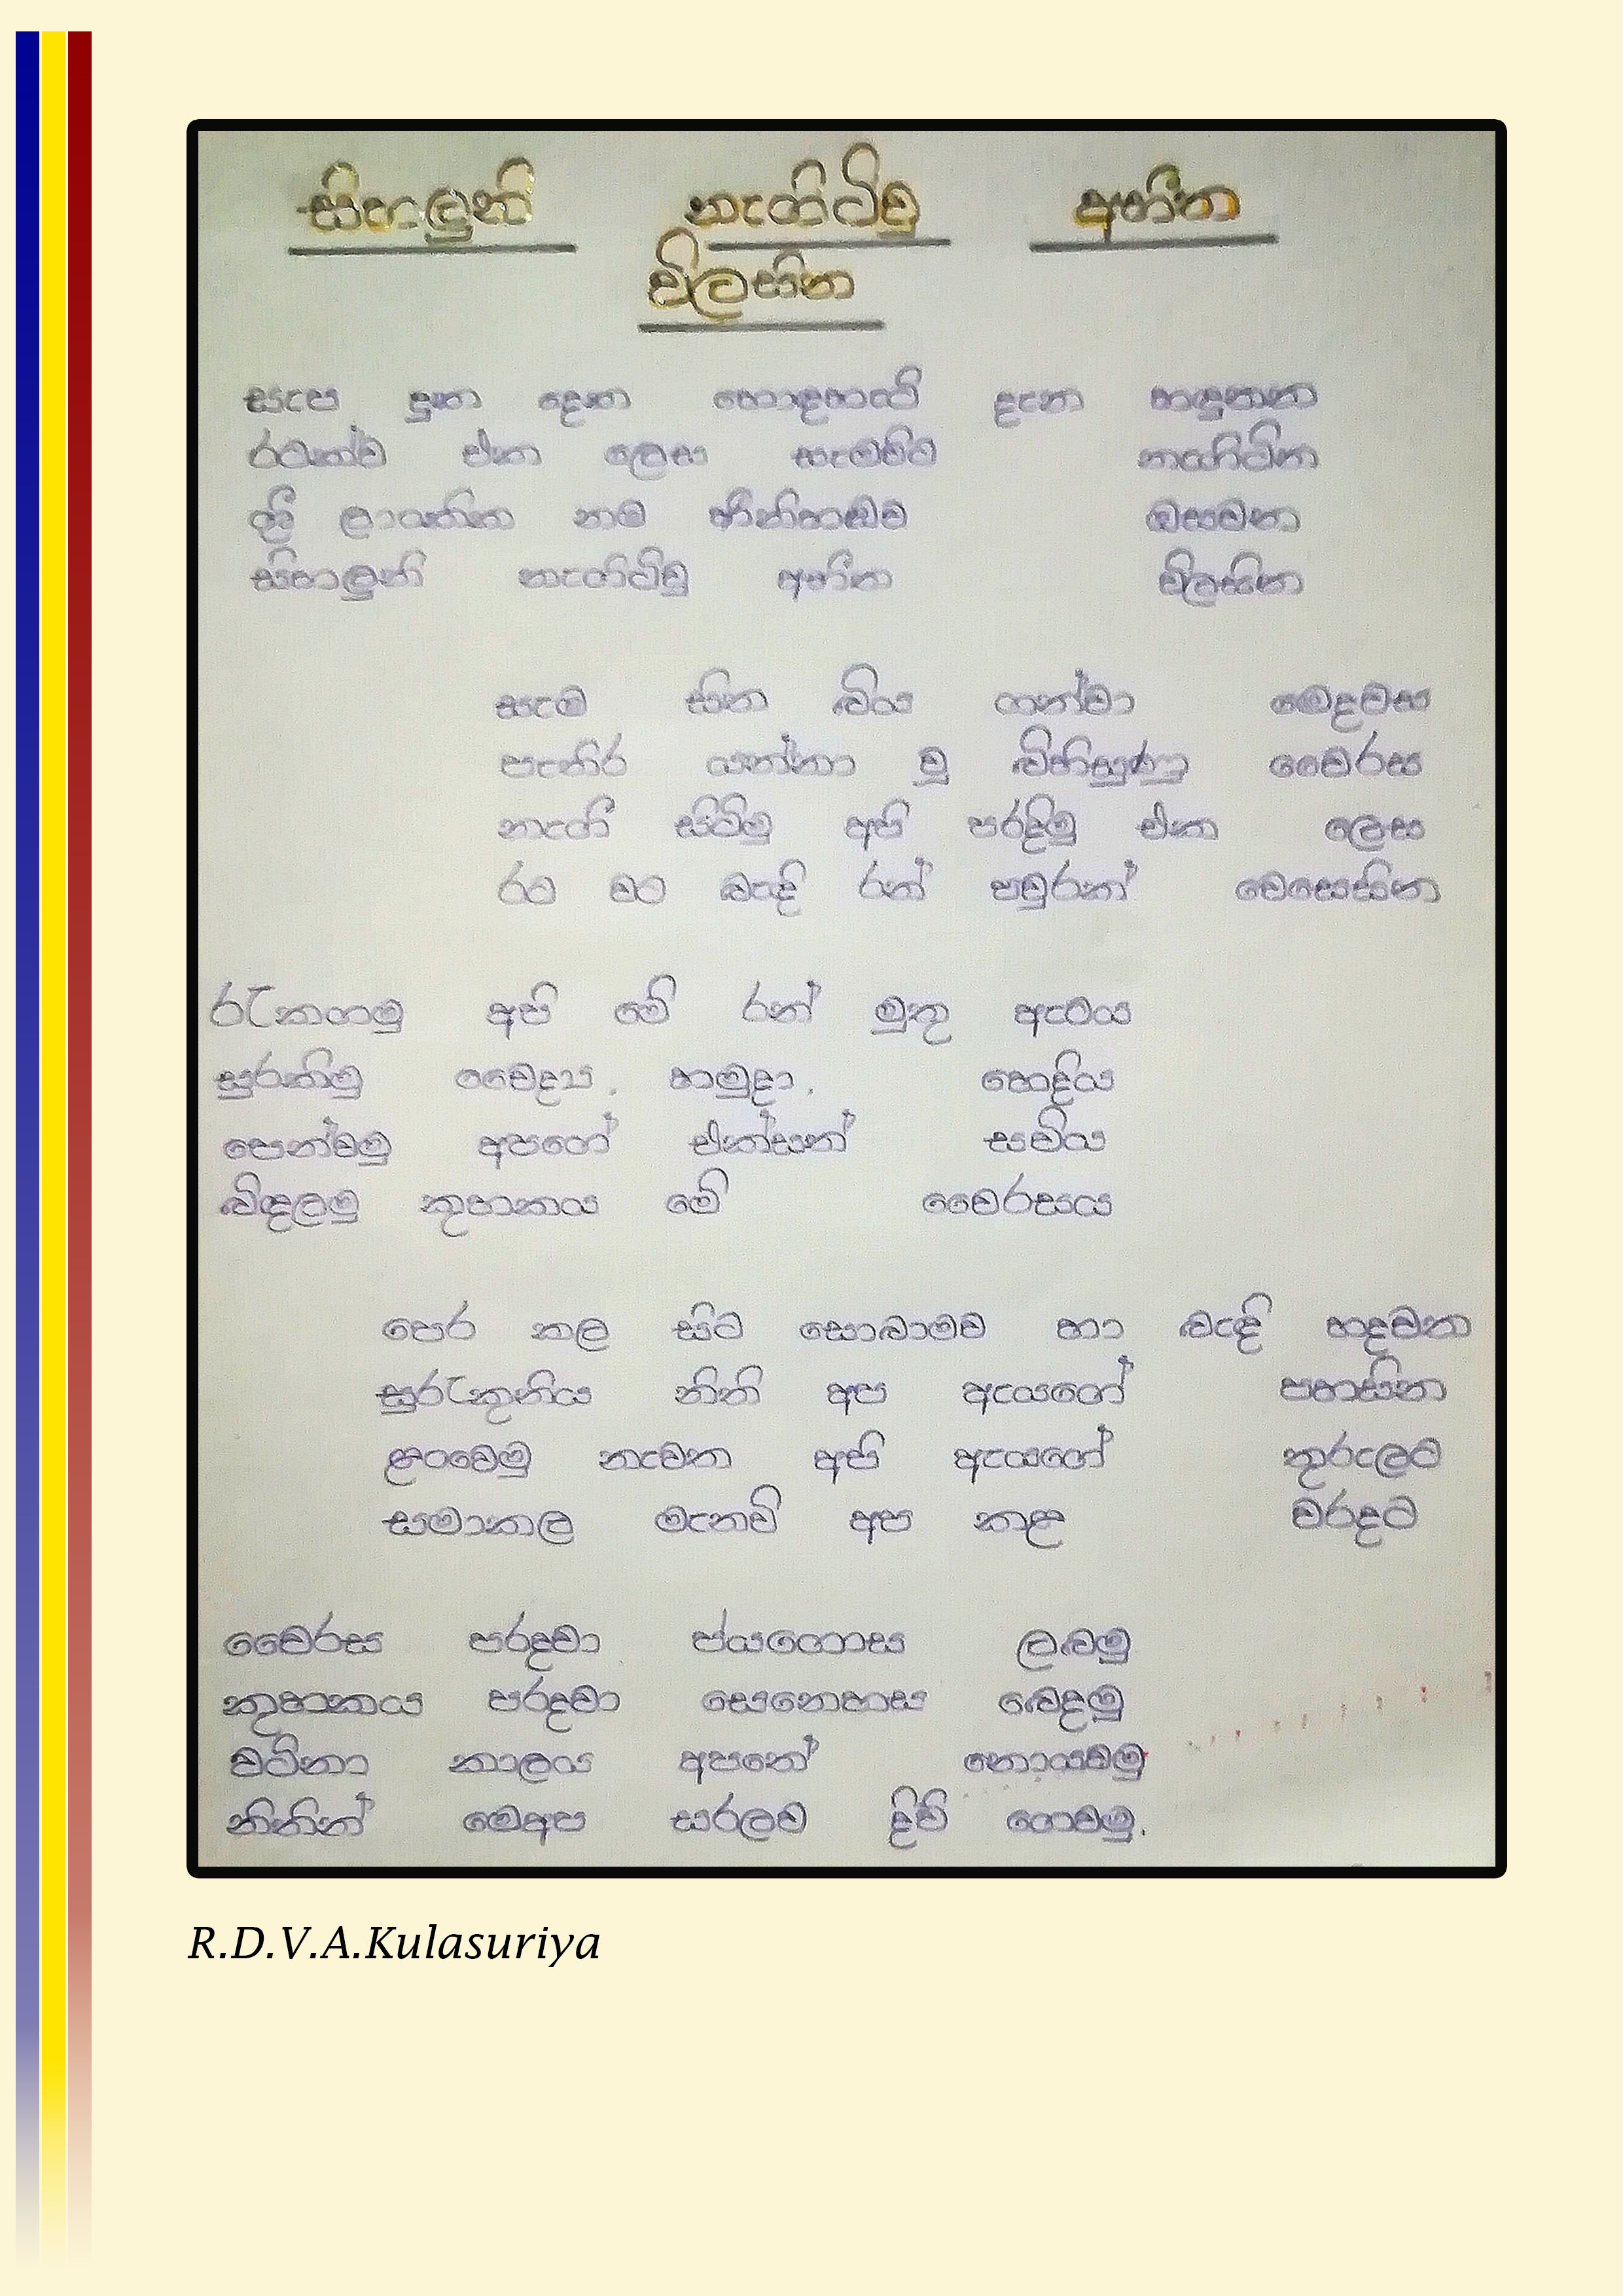 සිහලුනි නැගිටිව් අභීත
විලසින
සැප දුක දෙක හොඳහැටි දැන හඳුනන
රටක්ව එක ලෙස සැමවිට නැගිටින
ශ්‍රී ලාංකික නම අභිමානව බසවනා
සිහලුනි නැගිටිව් අභීත විලසින
සැම සිත බිය ගන්වා මෙදවස
පැතිර යන්නා වූ බිහිසුණු වෛරස
නැගී සිටිමු අපි පරදිමු එක ලෙස
රට වට බැඳි රන් පවුරක් වෙසෙසින
රැකගමු අපි මේ රන් මුතු ඇටය
සුරකිමු වෛද්‍ය, හමුදා, හෙදිය
පෙන්වමු අපගේ එක්සත් සවිය
බිඳලමු කුහකය මේ වෛරසය
පෙර කල සිට සොබාමව හා බැඳි හදවත
සුරැකුනිය නිති අප ඇයගේ පහසින
ළංවෙමු නැවත අපි ඇයගේ තුරුලට
සමාකල මැනවි අප කළ වරදට
වෛරස පරදවා ජයගොස ලබමු
කුහකය පරදවා සෙනෙහස බෙදමු
වටිනා කාලය අපතේ නොයවමු
නිතින් මෙඅප සරලව දිවි ගෙවමු.
R.D.V.A.Kulasuriya